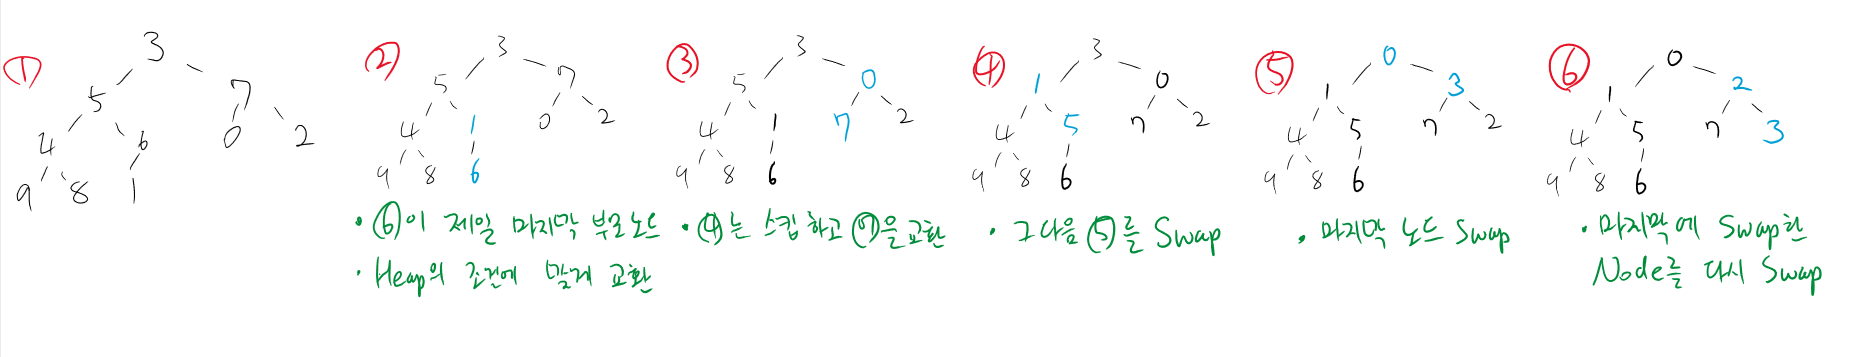 ①
3
5 7
4 6 0 2
9 8 1
②
3
5 7
4 1 0 2
9 8 6
• ⑥이 제일 마지막 부모노드
• Heap의 조건에 맞게 교환
③
3
5 0
4 1 7 2
9 8 6
• ④는 스킵하고 ⑦을 교환
④
3
1 0
4 5 7 2
9 8 6
• 그다음 ⑤를 Swap
⑤
0
1 3
4 5 7 2
9 8 6
• 마지막 노드 Swap
⑥
0
1 2
4 5 7 3
9 8 6
• 마지막에 Swap한
Node를 다시 Swap